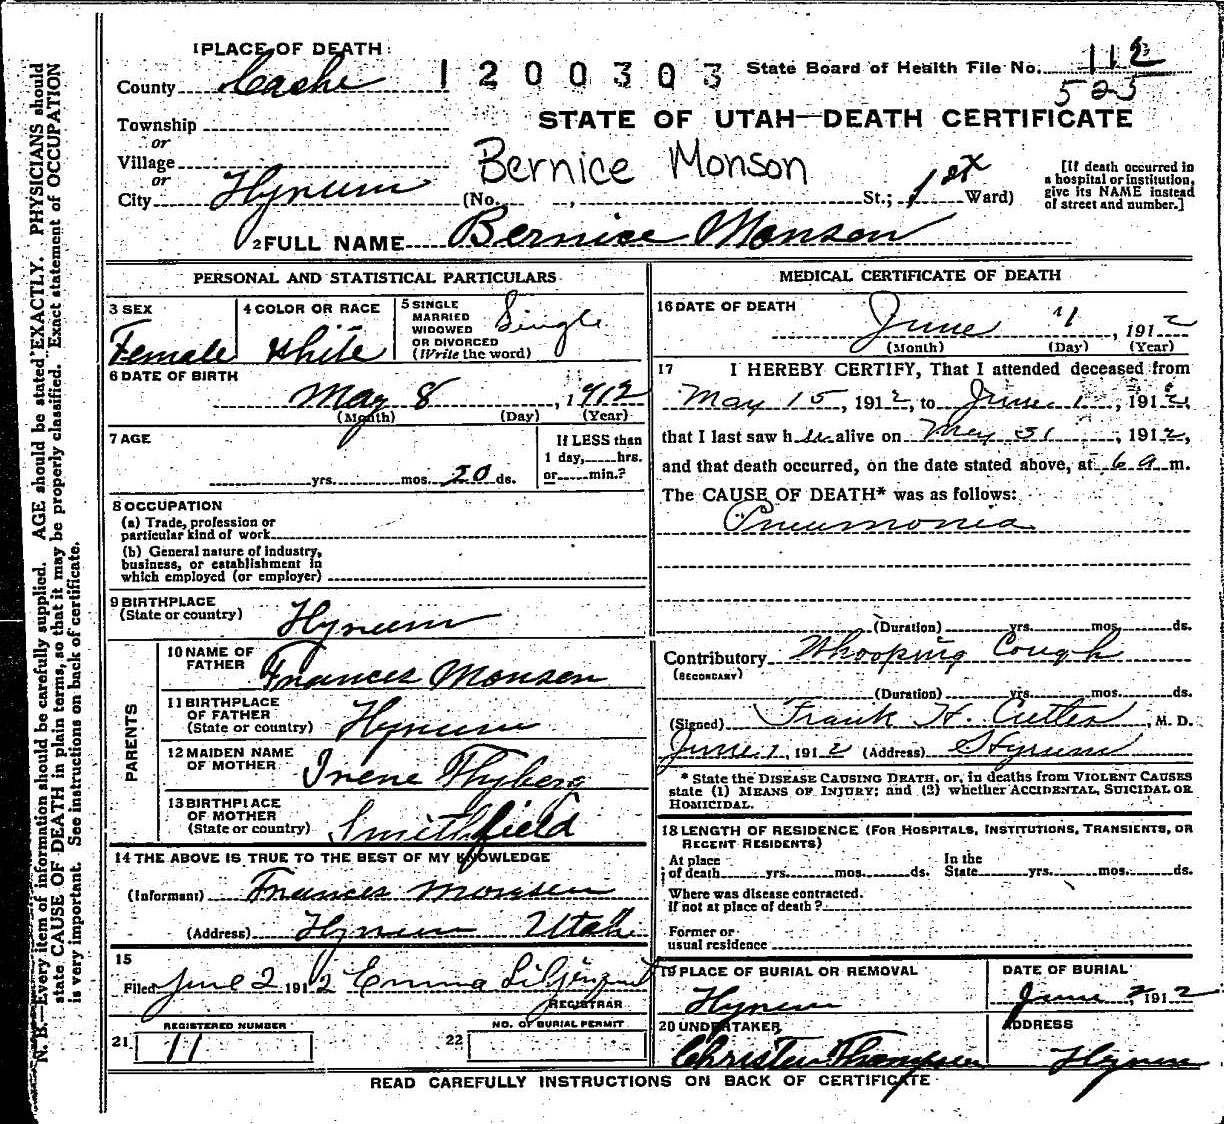 1 PLACE OF DEATH:
County Cache 1200303 State Board of Health File No. 112
523
STATE OF UTAH—DEATH CERTIFICATE
Township
or
Village
or
City Hyrum Bernice Monson
(No. , St.; 1st Ward)
[If death occurred in
a hospital or institution,
give its NAME instead
of street and number.]
2 FULL NAME Bernice Monson
PERSONAL AND STATISTICAL PARTICULARS
3 SEX
Female
4 COLOR OR RACE
White
5 SINGLE
MARRIED
WIDOWED
OR DIVORCED
(Write the word)
Single
6 DATE OF BIRTH
May 8, 1912
(Month) (Day) (Year)
7 AGE
yrs. mos. 20 ds.
If LESS than
1 day, hrs.
or min.?
8 OCCUPATION
(a) Trade, profession or
particular kind of work
(b) General nature of industry,
business, or establishment in
which employed (or employer)
9 BIRTHPLACE
(State or country) Hyrum
PARENTS
10 NAME OF
FATHER Frances Monson
11 BIRTHPLACE
OF FATHER
(State or country) Hyrum
12 MAIDEN NAME
OF MOTHER Irene Thyberg
13 BIRTHPLACE
OF MOTHER
(State or country) Smithfield
14 THE ABOVE IS TRUE TO THE BEST OF MY KNOWLEDGE
(Informant) Frances Monson
(Address) Hyrum Utah
15
Filed June 2 1912 Emma
REGISTRAR
REGISTERED NUMBER
21 11
NO. OF BURIAL PERMIT
22
MEDICAL CERTIFICATE OF DEATH
16 DATE OF DEATH
June 1, 1912
(Month) (Day) (Year)
17 I HEREBY CERTIFY, That I attended deceased from
May 15, 1912, to June 1, 1912,
that I last saw her alive on May 31, 1912,
and that death occurred, on the date stated above, at 6 a m.
The CAUSE OF DEATH* was as follows:
Pneumonia
(Duration) yrs. mos. ds.
Contributory Whooping Cough
(SECONDARY)
(Duration) yrs. mos. ds.
(Signed) Frank H. Cutler, M. D.
June 1, 1912 (Address) Hyrum
* State the DISEASE CAUSING DEATH, or, in deaths from VIOLENT CAUSES
state (1) MEANS OF INJURY; and (2) whether ACCIDENTAL, SUICIDAL OR
HOMICIDAL.
18 LENGTH OF RESIDENCE (FOR HOSPITALS, INSTITUTIONS, TRANSIENTS, OR
RECENT RESIDENTS)
At place
of death yrs. mos. ds.
In the
State yrs. mos. ds.
Where was disease contracted.
If not at place of death?
Former or
usual residence
19 PLACE OF BURIAL OR REMOVAL
Hyrum
DATE OF BURIAL
June 2, 1912
20 UNDERTAKER
Thompsen
ADDRESS
Hyrum
READ CAREFULLY INSTRUCTIONS ON BACK OF CERTIFICATE
N. B.—Every item of information should be carefully supplied. AGE should be stated EXACTLY. PHYSICIANS should
state CAUSE OF DEATH in plain terms, so that it may be properly classified. Exact statement of OCCUPATION
is very important. See instructions on back of certificate.